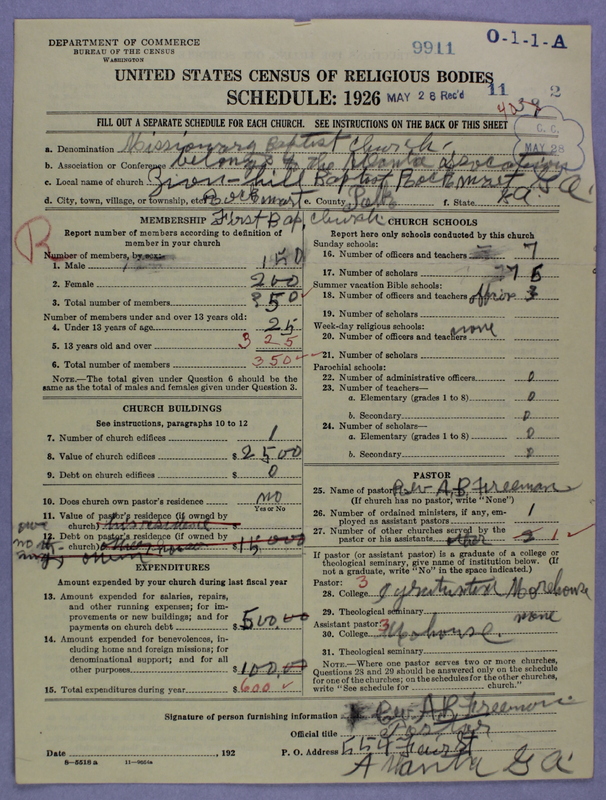 DEPARTMENT OF COMMERCE
BUREAU OF THE CENSUS
WASHINGTON
9911
O-1-1-A
UNITED STATES CENSUS OF RELIGIOUS BODIES
SCHEDULE: 1926
MAY 28 Rec'd
11 2
FILL OUT A SEPARATE SCHEDULE FOR EACH CHURCH. SEE INSTRUCTIONS ON THE BACK OF THIS SHEET
C. C.
MAY 28
a. Denomination Missionary Baptist Church
b. Association or Conference belongs to the Atlanta Association
c. Local name of church Zion-Hill Baptist Rockmart Ga
d. City, town, village, or township, etc. Rockmart e. County Polk f. State Ga
First Bap, Church
MEMBERSHIP
Report number of members according to definition of member in your church
Number of members, by sex:
1. Male 150
2. Female 200
3. Total number of members 350
Number of members under and over 13 years old:
4. Under 13 years of age 25
5. 13 years old and over 325
6. Total number of members 350
NOTE.—The total given under Question 6 should be the same as the total of males and females given under Question 3.
CHURCH BUILDINGS
See instructions, paragraphs 10 to 12
7. Number of church edifices 1
8. Value of church edifices $ 2500
9. Debt on church edifices $ 0
10. Does church own pastor's residence no
Yes or No
11. Value of pastor's residence (if owned by church) his residence
12. Debt on pastor's residence (if owned by church) $ 15000
EXPENDITURES
Amount expended by your church during last fiscal year
13. Amount expended for salaries, repairs, and other running expenses; for improvements or new buildings; and for payments on church debt $ 500,00
14. Amount expended for benevolences, including home and foreign missions; for denominational support; and for all other purposes $ 100,00
15. Total expenditures during year $ 600
CHURCH SCHOOLS
Report here only schools conducted by this church
Sunday schools:
16. Number of officers and teachers 7
17. Number of scholars
Summer vacation Bible schools:
18. Number of officers and teachers 3
19. Number of scholars
Week-day religious schools:
20. Number of officers and teachers none
21. Number of scholars
Parochial schools:
22. Number of administrative officers 0
23. Number of teachers—
a. Elementary (grades 1 to 8) 0
b. Secondary 0
24. Number of scholars—
a. Elementary (grades 1 to 8) 0
b. Secondary 0
PASTOR
25. Name of pastor Rev A.B. Freeman
(If church has no pastor, write "None")
26. Number of ordained ministers, if any, employed as assistant pastors 1
27. Number of other churches served by the pastor or his assistants 1
If pastor (or assistant pastor) is a graduate of a college or theological seminary, give name of institution below. (If not a graduate, write "No" in the space indicated.)
Pastor: 3
28. College Morehouse
29. Theological seminary none
Assistant pastor: 3
30. College Mohouse
31. Theological seminary
NOTE.—Where one pastor serves two or more churches, Questions 28 and 29 should be answered only on the schedule for one of the churches; on the schedules for the other churches, write "See schedule for church."
Signature of person furnishing information Rev. A B Freeman
Official title Pastor
Date , 192
P. O. Address
Atlanta Ga
8—5518a 11—9864a